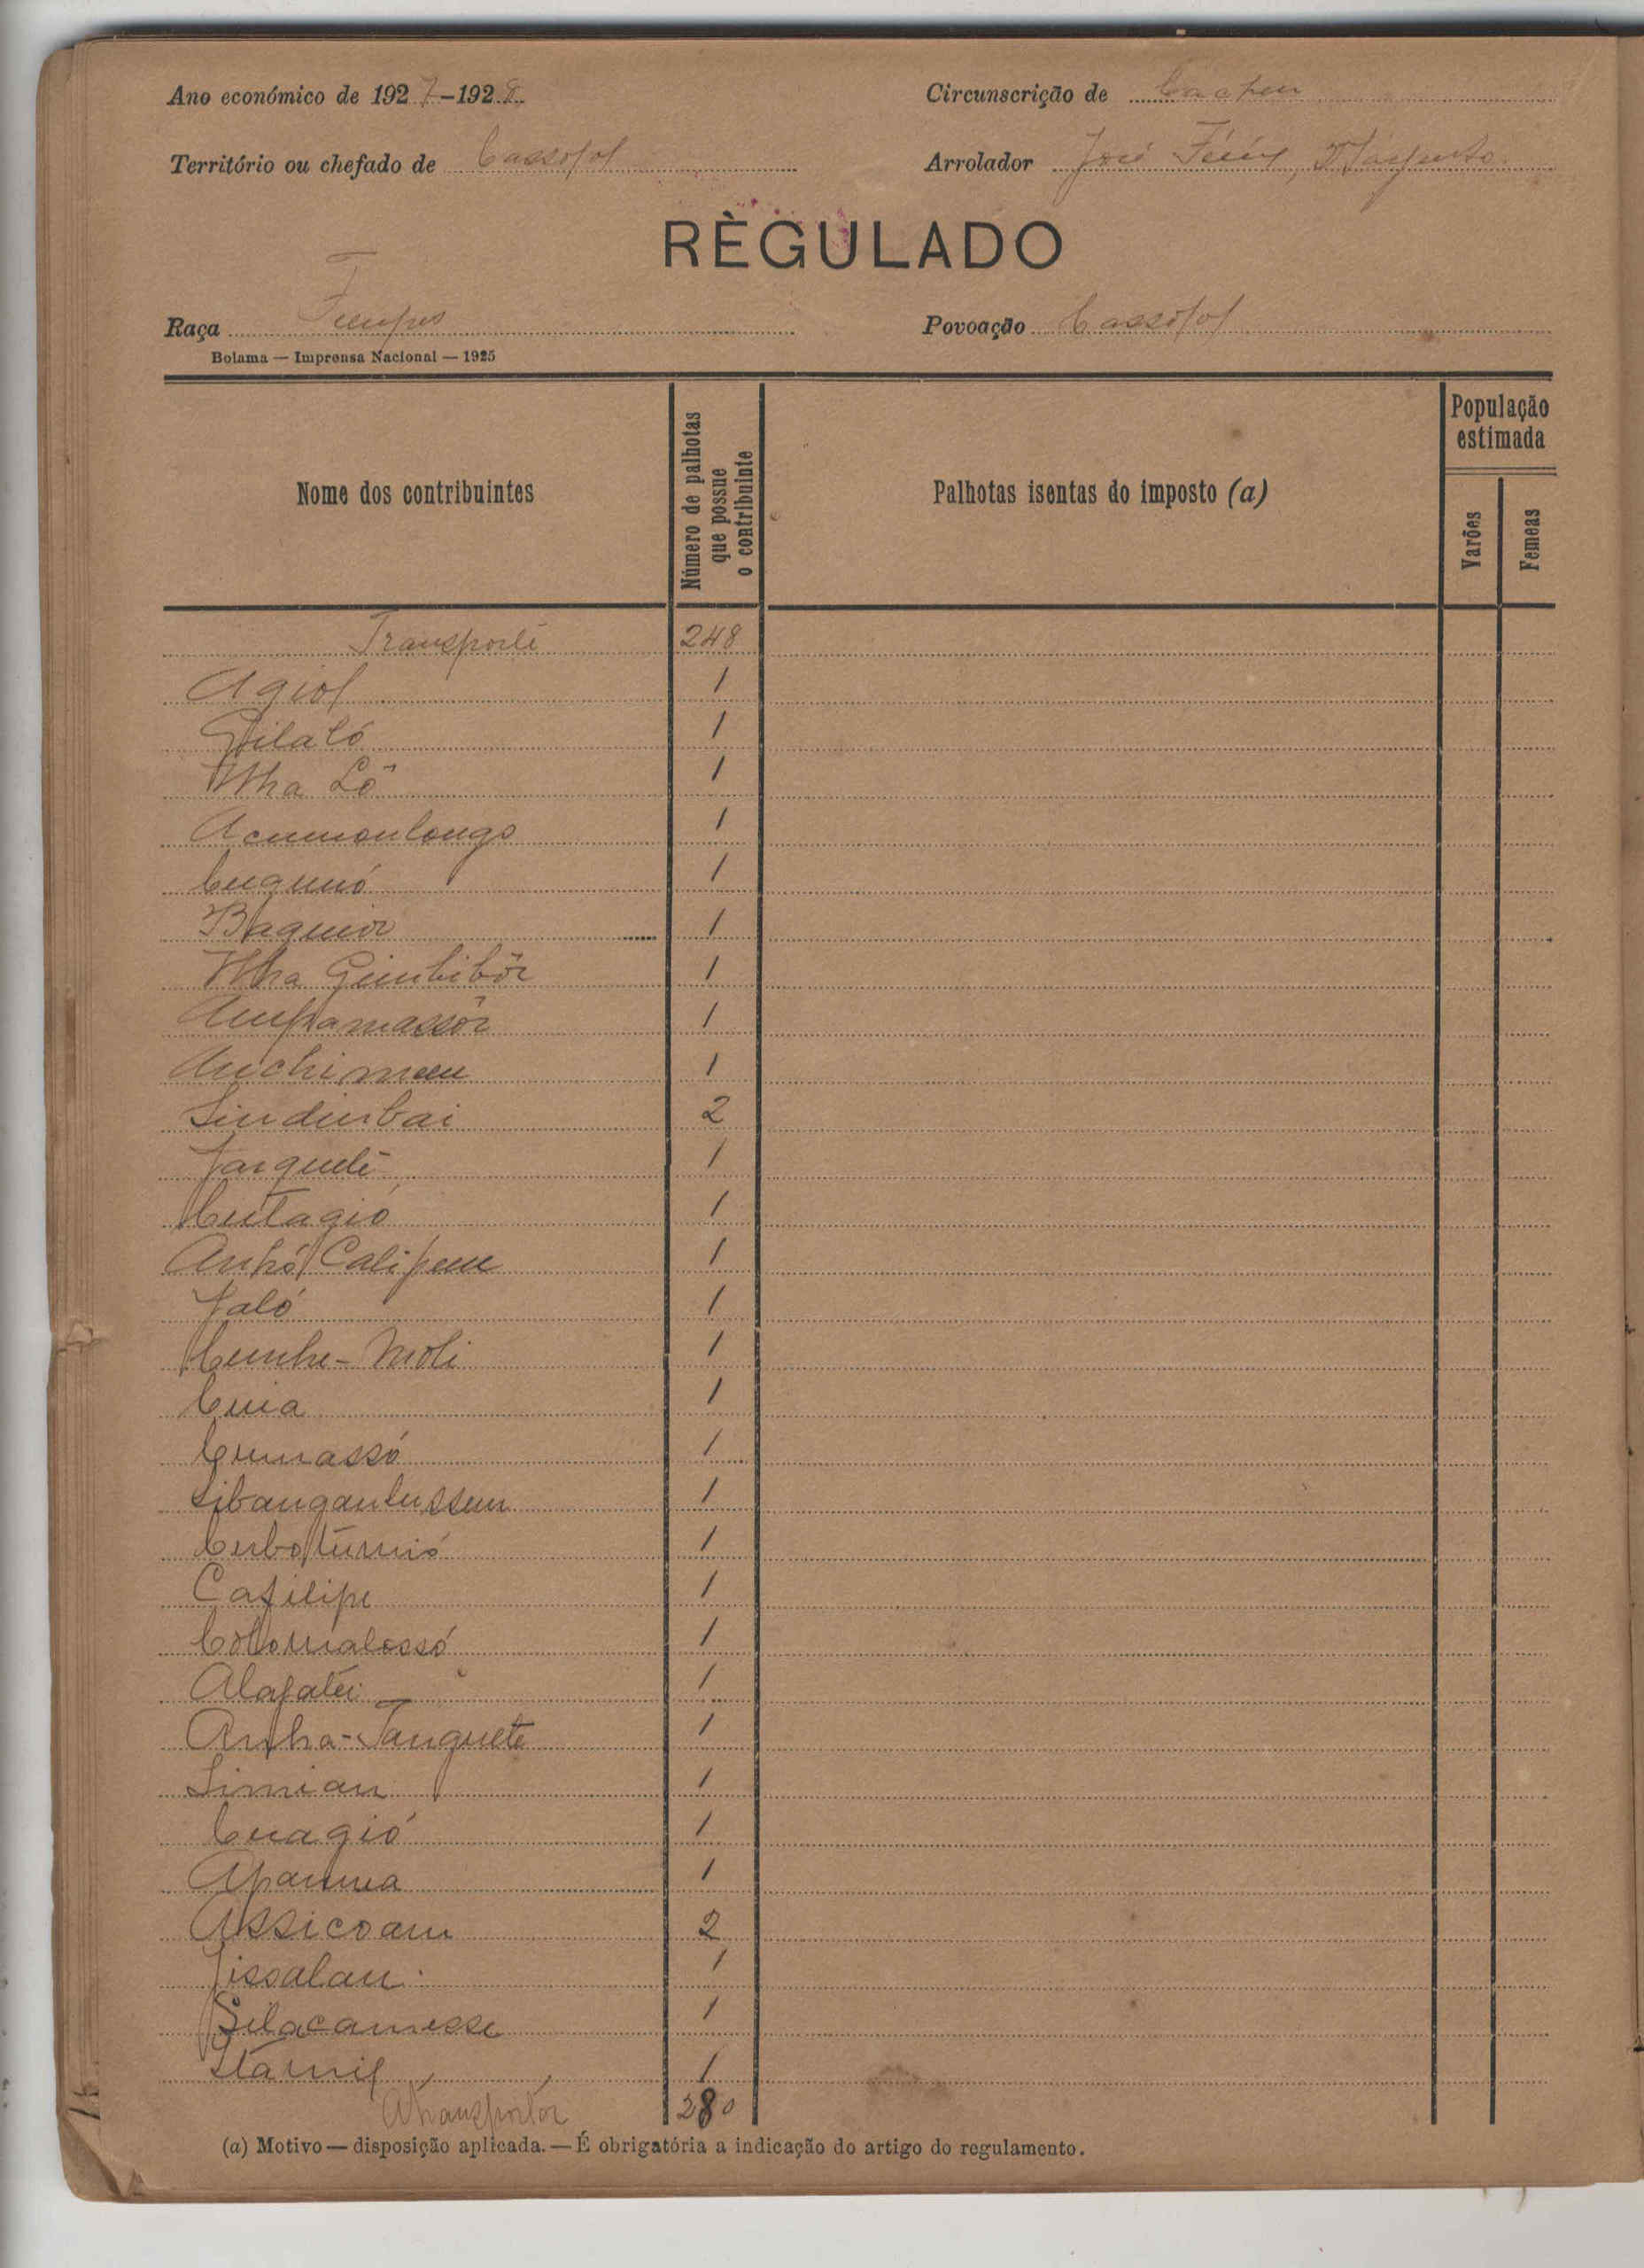 Ano económico de 1927-1928
Circunscrição de Cacheu
Território ou chefado de Cassolol
Arrolador José
RÈGULADO
Raça Felupes
Povoação Cassolol
Bolama — Imprensa Nacional — 1925
Nome dos contribuintes
Número de palhotas que possue o contribuinte
Palhotas isentas do imposto (a)
População estimada
Varões
Femeas
Transporte 248
Agiol 1
1
Nha Lô 1
Acumonlongo 1
Cugumó 1
Baguior 1
Nha Gimbibôr 1
Ampamassôr 1
Anchimau 1
Sindimbai 2
Jarguelé 1
Cutagió 1
Anhó Calipem 1
Jaló 1
Cunhe-Moli 1
Cuia 1
Cumassó 1
Libangantussem 1
1
Cafilipe 1
1
Alafaléi 1
Anha-Tanguete 1
Simian 1
Cuagió 1
Apamna 1
Assicoam 2
Jissalau 1
Silacamesse 1
1
A transportar 280
(a) Motivo — disposição aplicada. — É obrigatória a indicação do artigo do regulamento.